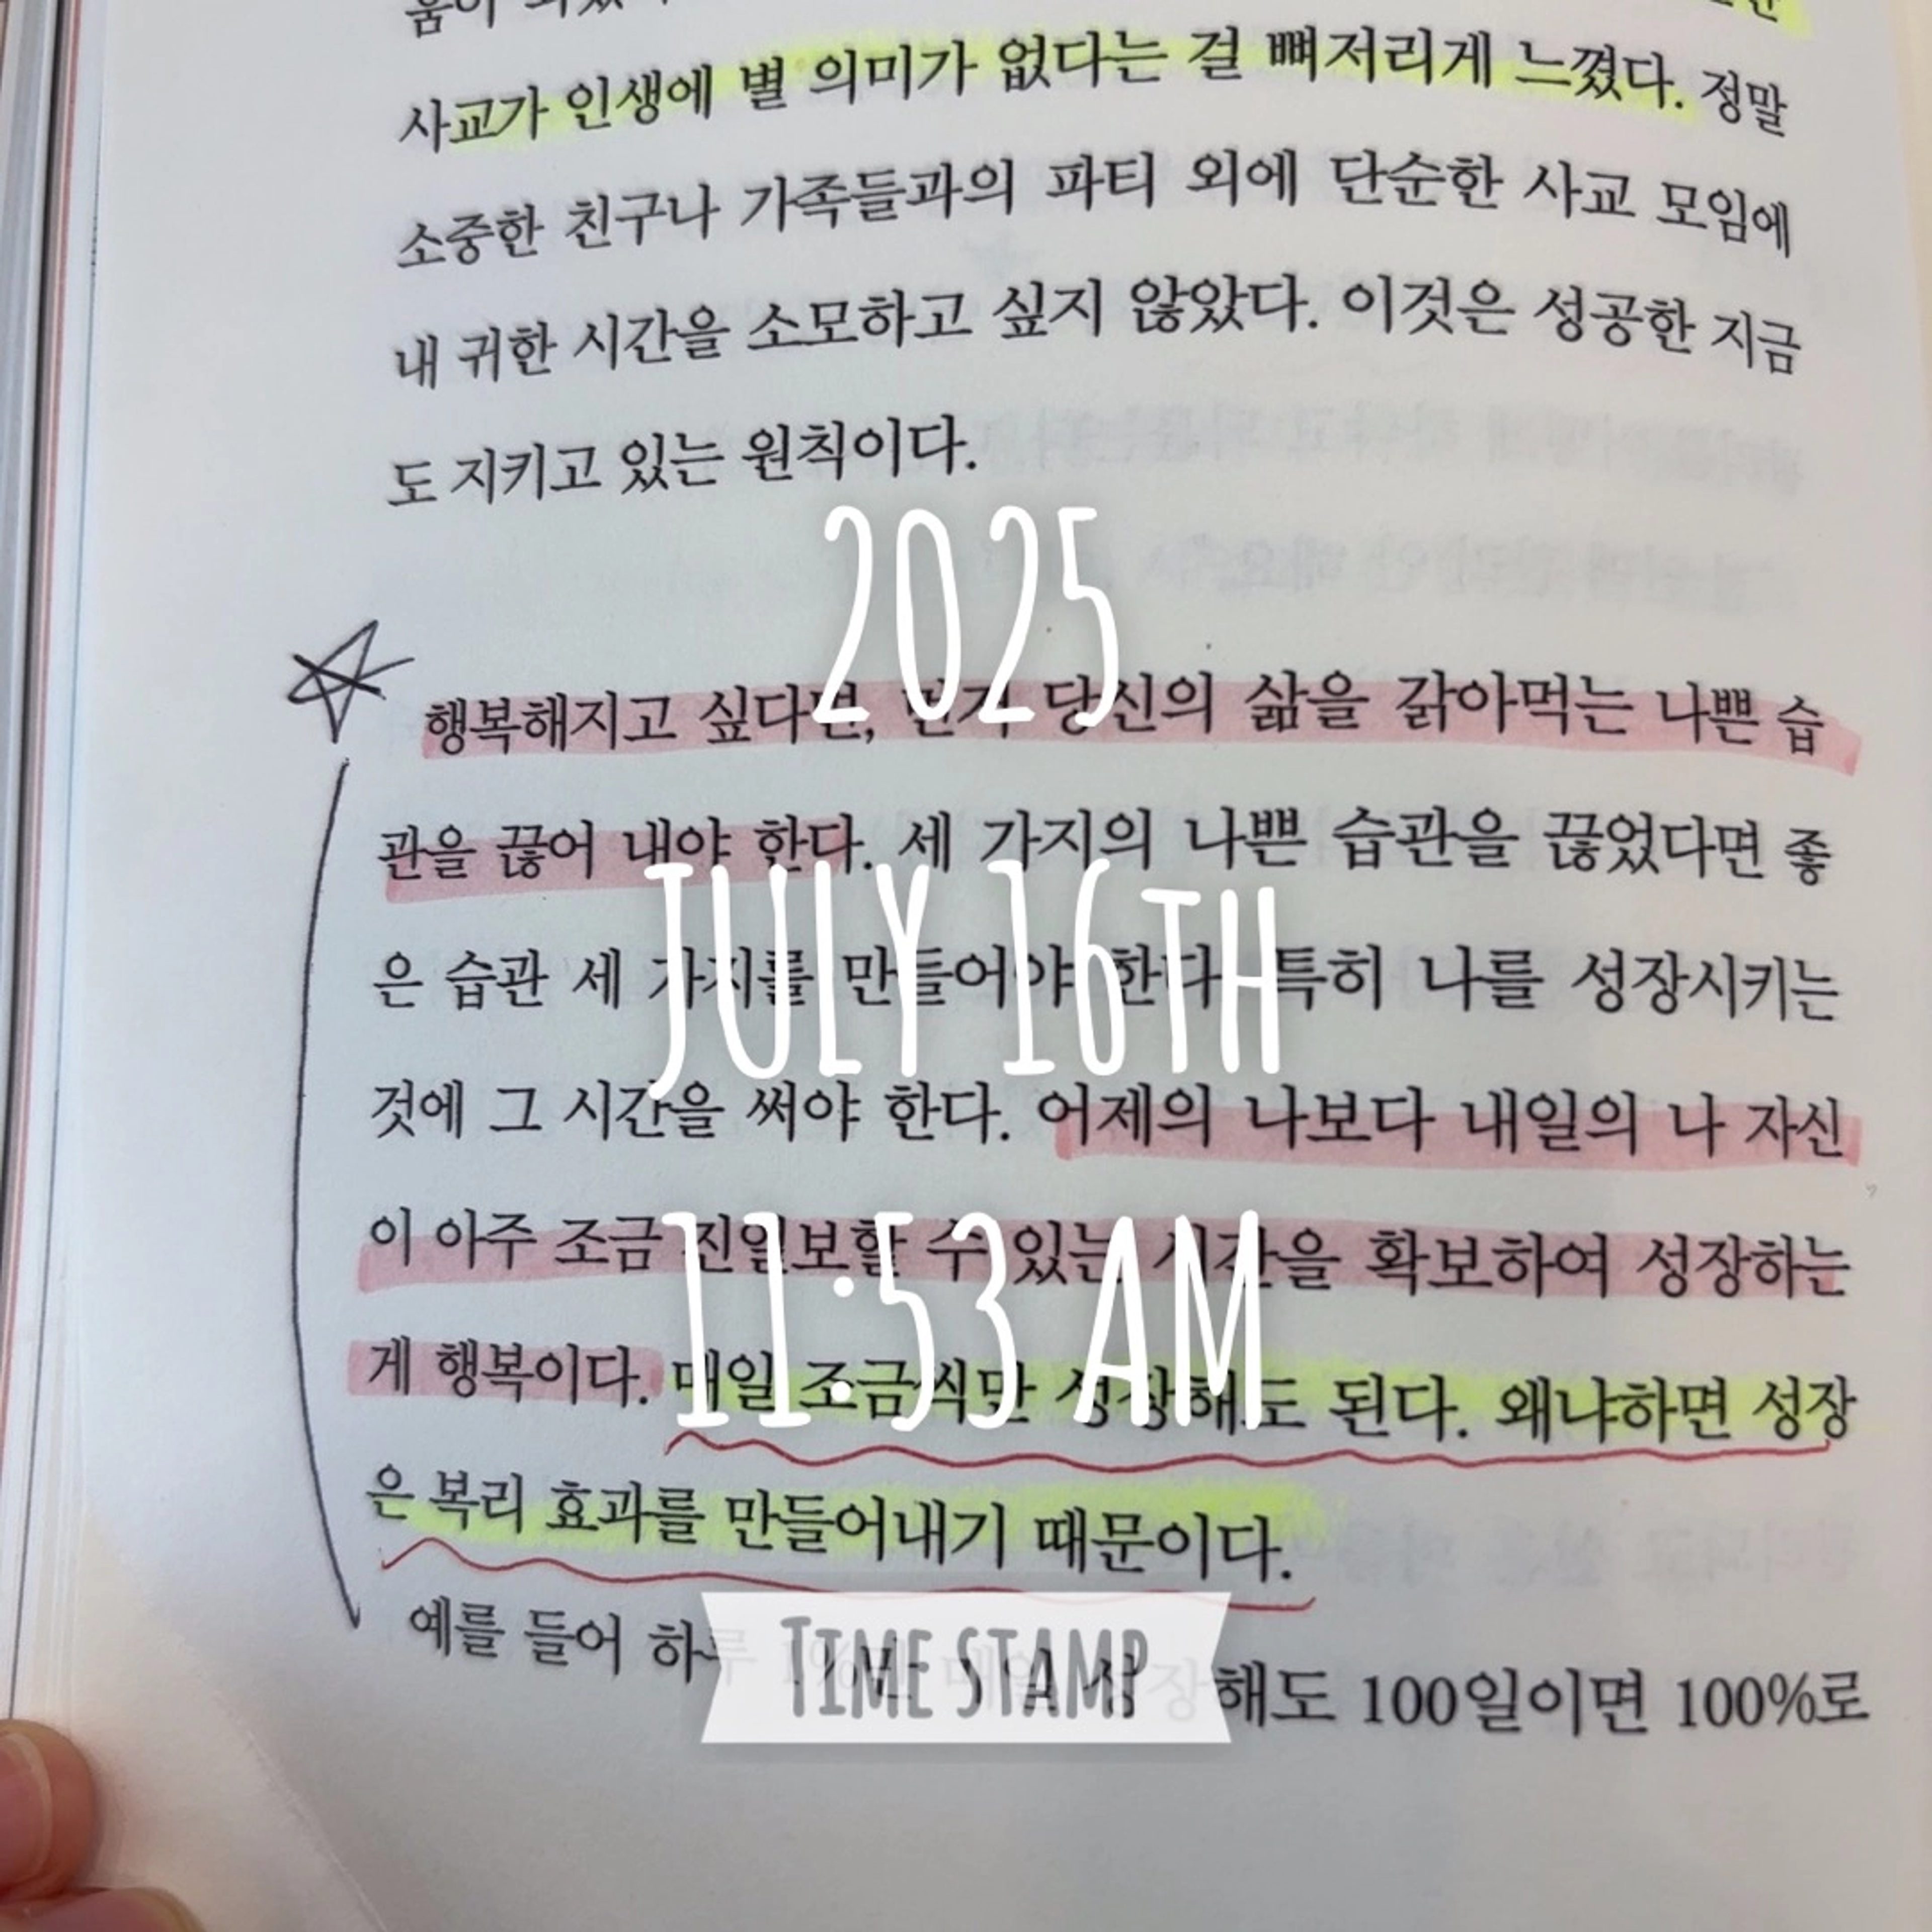 사교가 인생에 별 의미가 없다는 걸 뼈저리게 느꼈다. 정말
소중한 친구나 가족들과의 파티 외에 단순한 사교 모임에
내 귀한 시간을 소모하고 싶지 않았다. 이것은 성공한 지금
도 지키고 있는 원칙이다.
2025
행복해지고 싶다면, 먼저 당신의 삶을 갉아먹는 나쁜 습
관을 끊어 내야 한다. 세 가지의 나쁜 습관을 끊었다면 좋
JULY 16TH
은 습관 세 가지를 만들어야 한다. 특히 나를 성장시키는
것에 그 시간을 써야 한다. 어제의 나보다 내일의 나 자신
이 아주 조금 진일보할 수 있는 시간을 확보하여 성장하는
11:53 AM
게 행복이다. 매일 조금씩만 성장해도 된다. 왜냐하면 성장
은 복리 효과를 만들어내기 때문이다.
예를 들어 하루 1%만 매일 성장해도 100일이면 100%로
TIME STAMP